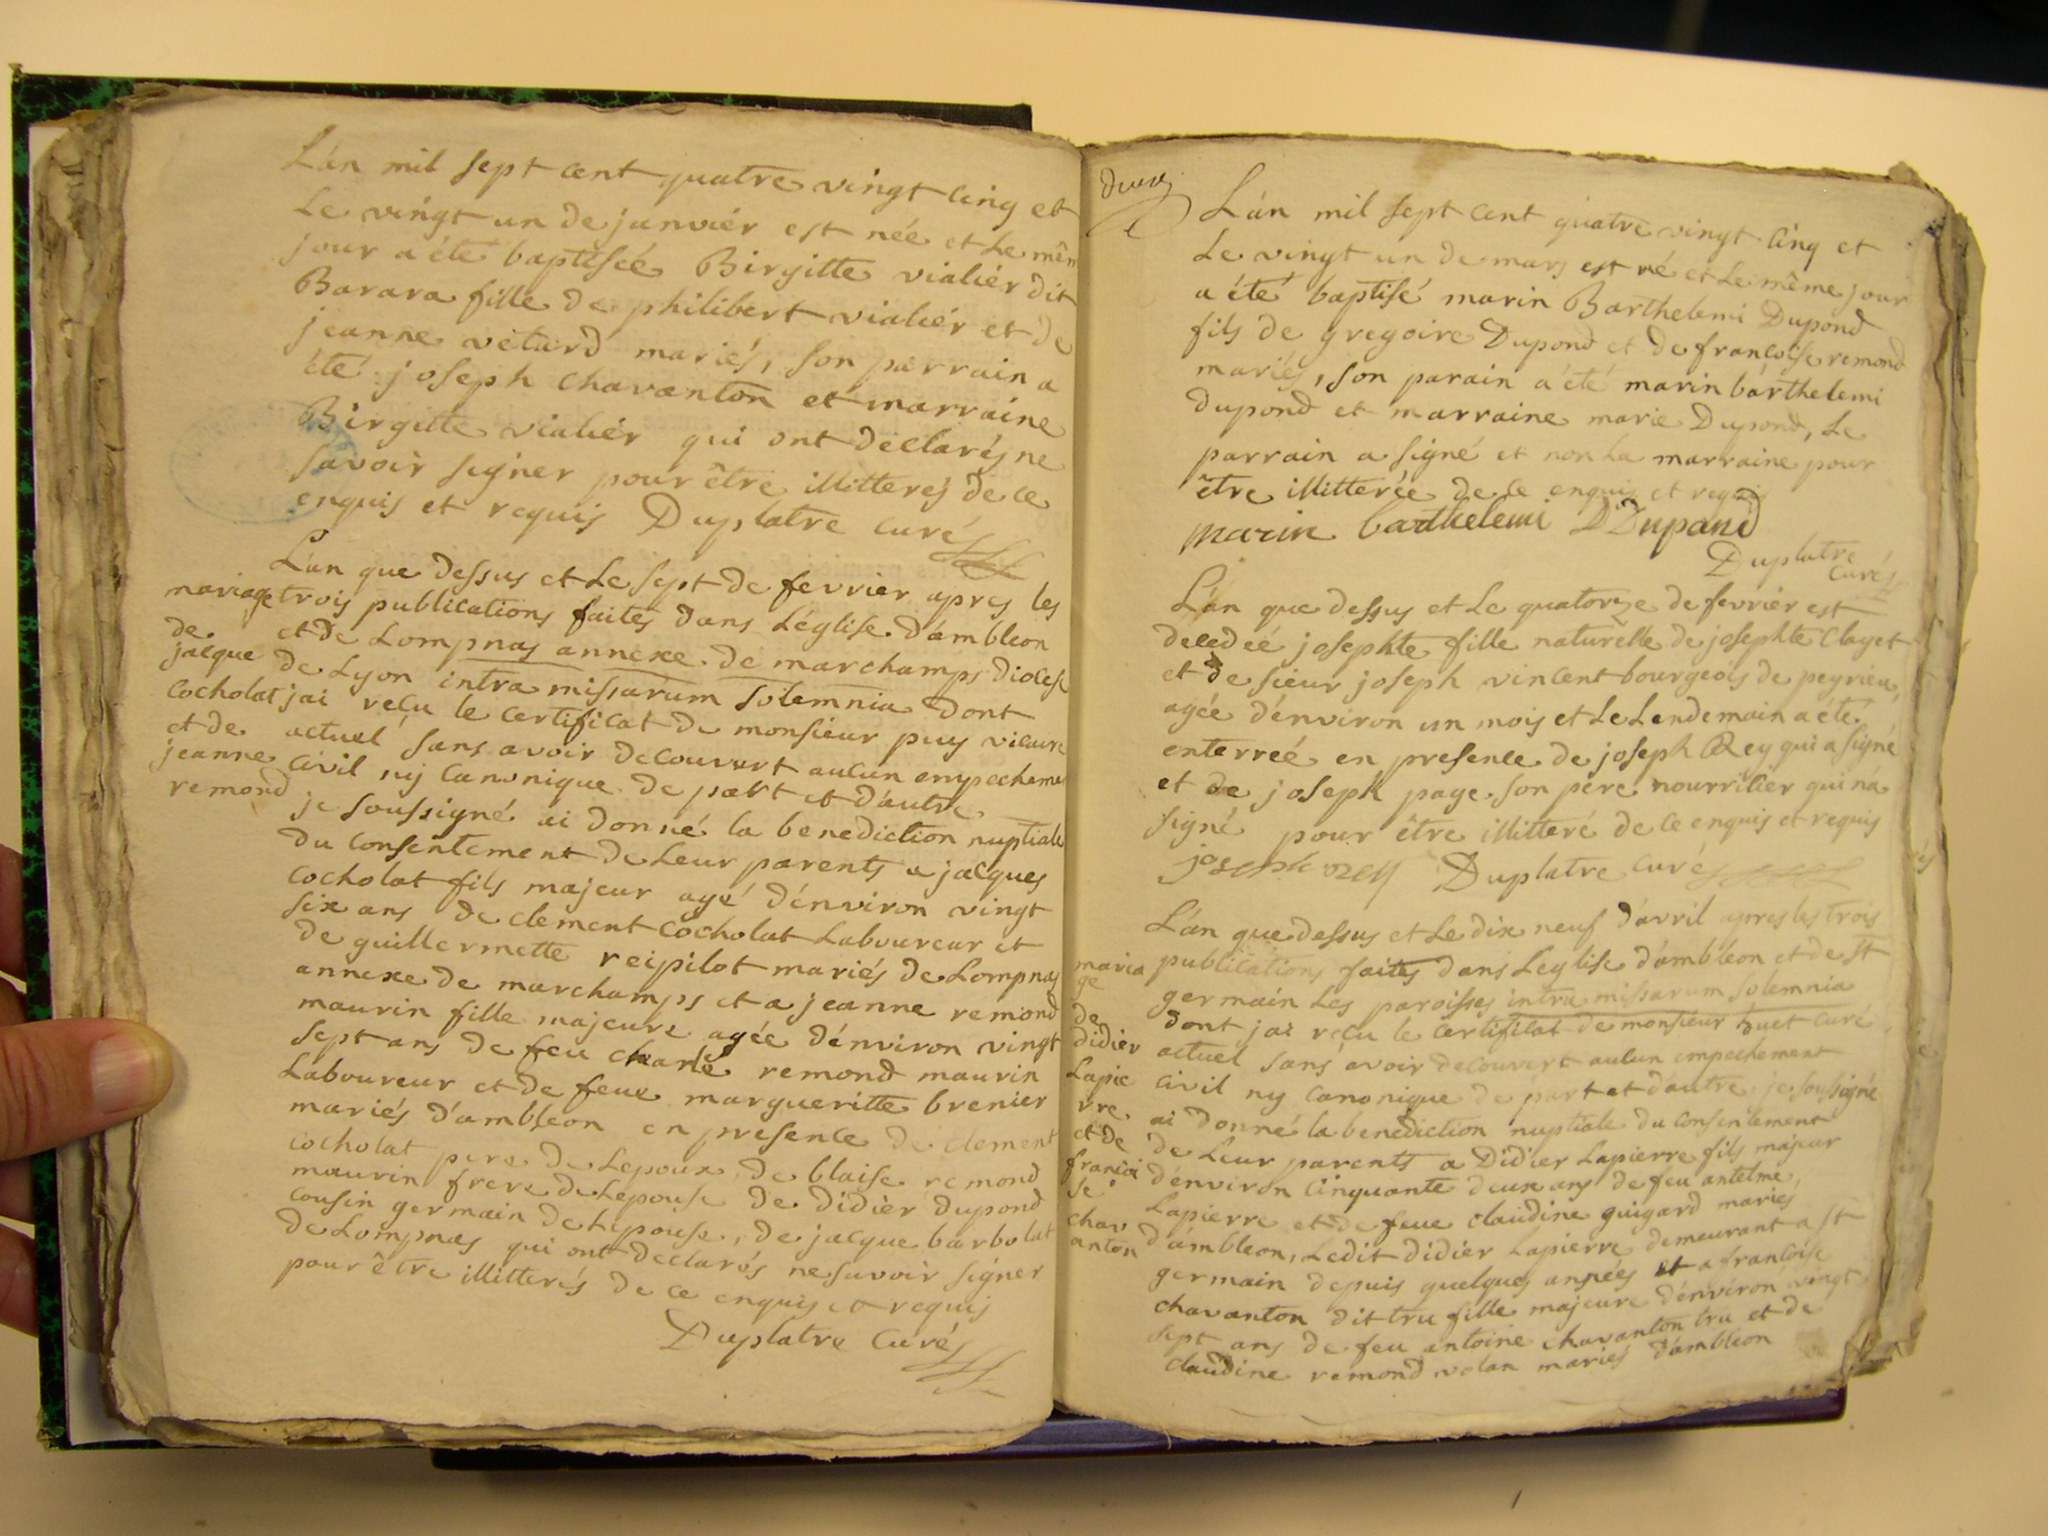 L'an mil sept cent quatre vingt cinq et
Le vingt un de janvier est née et Le mêm
jour a été baptisée Birgitte vialiér dit
Barara fille de philibert vialiér et de
jeanne vétard mariés, son parrain a
été joseph chavanton et marraine
Birgitte vialiér qui ont déclarés ne
savoir signer pour être illitterés de ce
enquis et requis Duplatre curé
L'an que dessus et Le sept de fevrier apres les
trois publications faites dans L'église d'ambleon
et de Lompnas annexe de marchamps diocese
de Lyon intra missarum solemnia dont
jai reçu le certificat de monsieur puy vicaire
actuel sans avoir decouvert aucun empecheme
civil nij canonique de part et d'autre
je soussigné ai donné la benediction nuptiale
du consentement de Leur parents a jacques
cocholat fils majeur agé d'environ vingt
six ans de clement cocholat Laboureur et
de guillermette reipilot mariés de Lompnas
annexe de marchamps et a jeanne remond
maurin fille majeure agée d'environ vingt
sept ans de feu charle remond maurin
Laboureur et de feue margueritte brenier
mariés d'ambleon en presence de clement
cocholat pere de Lepoux, de blaise remond
maurin frere de Lepouse de didier dupond
cousin germain de Lepouse, de jacque barbolat
de Lompnas qui ont declarés ne savoir signer
pour être illitterés de ce enquis et requis
Duplatre curé
mariage
de
jacque
cocholat
et de
jeanne
remond
deux
L'an mil sept cent quatre vingt cinq et
Le vingt un de mars est né et Le même jour
a été baptisé marin Barthelemi Dupond
fils de gregoire Dupond et de francoise remond
mariés, son parain a été marin barthelemi
dupond et marraine marie Dupond, Le
parrain a signé et non La marraine pour
être illitterée de ce enquis et requis
marin barthelemi Dupand
Duplatre
curé
L'an que dessus et Le quatorze de fevrier est
decedeé josephte fille naturelle de josephte Clayet
et de sieur joseph vincent bourgeois de peyrieu,
agée d'environ un mois et Le Lendemain a été
enterreé en presence de joseph Rey qui a signé
et de joseph page son pere nourricier qui na
signé pour être illitteré de ce enquis et requis
joseph rey Duplatre curé
L'an que dessus et Le dix neuf d'avril apres les trois
publications faites dans Leglise d'ambleon et de st
germain Les paroisses intra missarum solemnia
dont jai reçu le certificat de monsieur huet curé
actuel sans avoir decouvert aucun empechement
civil ny canonique de part et d'autre je soussigné
ai donné la benediction nuptiale du consentement
de Leur parents a Didier Lapierre fils majeur
d'environ cinquante deux ans de feu antelme
Lapierre et de feue claudine guigard mariés
d'ambleon, Ledit didier Lapierre demeurant a st
germain depuis quelques années et a francoise
chavanton dit tru fille majeure d'environ vingt
sept ans de feu antoine chavanton tru et de
claudine remond volan mariés d'ambleon
maria
ge
de
didier
Lapie
rre
et de
francoi
se
chav
anton